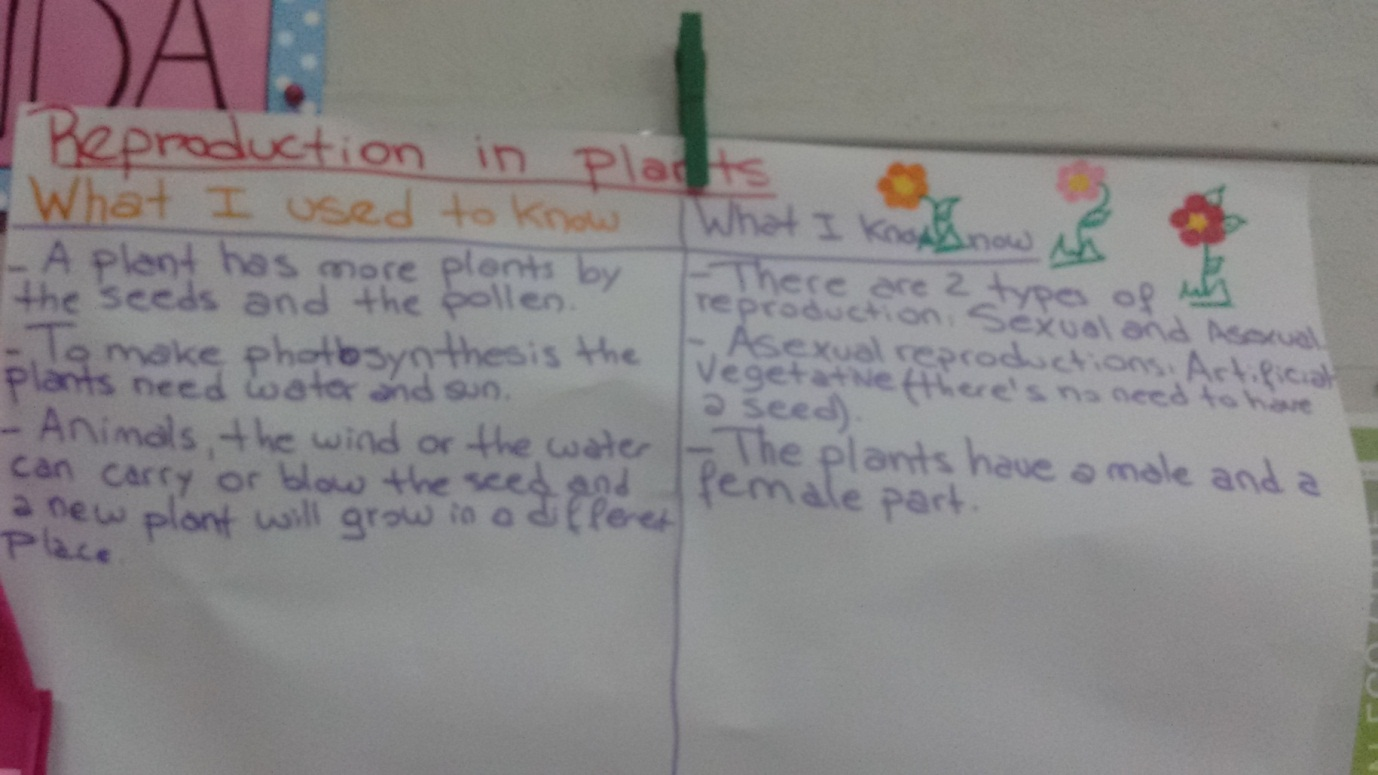 IDA
Reproduction in plants
What I used to know
- A plant has more plants by
the seeds and the pollen.
- To make photosynthesis the
plants need water and sun.
- Animals, the wind or the water
can carry or blow the seed and
a new plant will grow in a differet
place.
What I know now
- There are 2 types of
reproduction: Sexual and Asexual.
- Asexual reproductions: Artificial
Vegetative (there's no need to have
a seed).
- The plants have a male and a
female part.